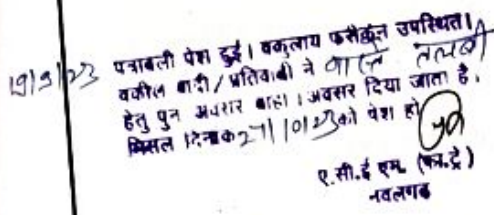 19/9/23 पत्रावली पेश हुई। वकूलाय फरीकैन उपस्थित।
वकील वादी/प्रतिवादी ने वास्ते तलबी
हेतु पुन अवसर चाहा। अवसर दिया जाता है।
मिसल दिनांक 27/10/23 को पेश हो
ए.सी.ई एम. (फा.ट्रे)
नवलगढ